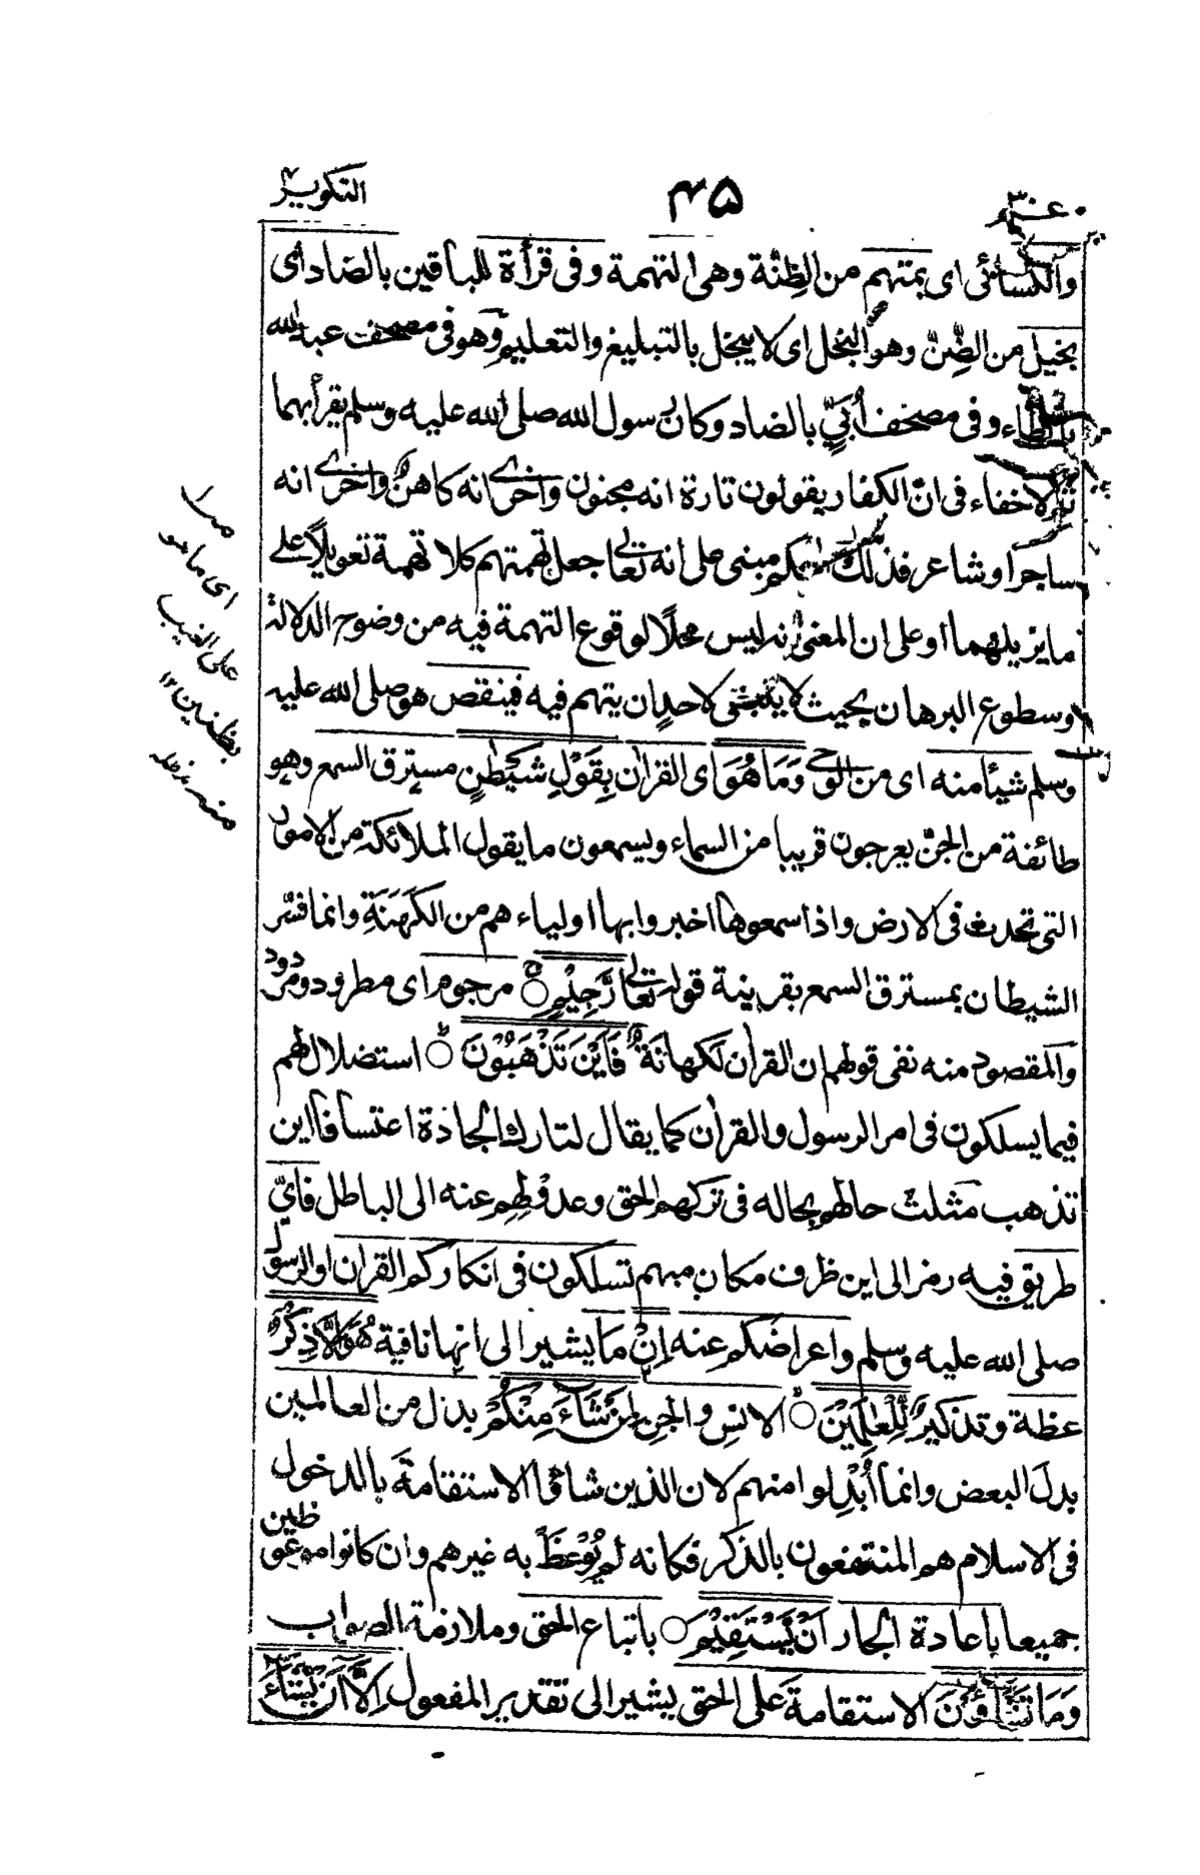 عـم ٣٠
۴۵
التكوير
والكسائى اى بمتهم من الظِنَّة وهى التهمة وفى قرأة للباقين بالضاد اى
بخيل من الضِّنِّ وهو البخل اى لا يبخل بالتبليغ والتعليم وهو فى مصحف عبد الله
بالظاء وفى مصحف اُبَيٍّ بالضاد وكان رسول الله صلى الله عليه وسلم يقرأ بهما
ثم لا خفاء فى انّ الكفار يقولون تارة انه مجنون واخرى انه كاهن واخرى انه
ساحر او شاعر فذلك مبنى على انه تعالى جعل تهمتهم كلا تهمة تعويلاً على
ما يزيلهما او على ان المعنى انه ليس محلاً لوقوع التهمة فيه من وضوح الدلالة
وسطوع البرهان بحيث لا ينبغى لاحد ان يتهم فيه فينقص هو صلى الله عليه
وسلم شيأ منه اى من الوحى وَمَا هُوَ اى القران بِقَوْلِ شَيْطٰنٍ مسترق السمع وهو
طائفة من الجنّ يعرجون قريبا من السماء ويسمعون ما يقول الملائكة من الامور
التى تحدث فى الارض واذا سمعوها اخبروا بها اولياءهم من الكَهَنَةِ وانما فسّر
الشيطان بمسترق السمع بقرينة قوله تعالى رَّجِيْمٍ ○ مرجوم اى مطرود ومردود
والمقصود منه نفى قولهم ان القران لكهانة فَاَيْنَ تَذْهَبُوْنَ ○ استضلال لهم
فيما يسلكون فى امر الرسول والقران كما يقال لتارك الجادة اعتسافا اين
تذهب مثلت حالهم بحاله فى تركهم الحق وعدولهم عنه الى الباطل فاىّ
طريق فيه رمز الى اين ظرف مكان مبهم تسلكون فى انكاركم القران او الرسول
صلى الله عليه وسلم واعراضكم عنه اِنْ ما يشير الى انها نافية هُوَ اِلَّا ذِكْرٌ
عظة وتذكير لِّلْعٰلَمِيْنَ ○ الانس والجن لِمَنْ شَآءَ مِنْكُمْ بدل من العالمين
بدلَ البعض وانما اُبْدِلوا منهم لان الذين شاؤا الاستقامة بالدخول
فى الاسلام هم المنتفعون بالذكر فكانه لم يُوْعَظْ به غيرهم وان كانوا موعوظين
جميعا باعادة الجار اَنْ يَّسْتَقِيْمَ ○ باتباع الحق وملازمة الصواب
وَمَا تَشَآؤُنَ الاستقامةَ على الحق يشير الى تقدير المفعول اِلَّا اَنْ يَّشَآءَ
اى ما هو
على الغيب
بظنين ١٢
منه